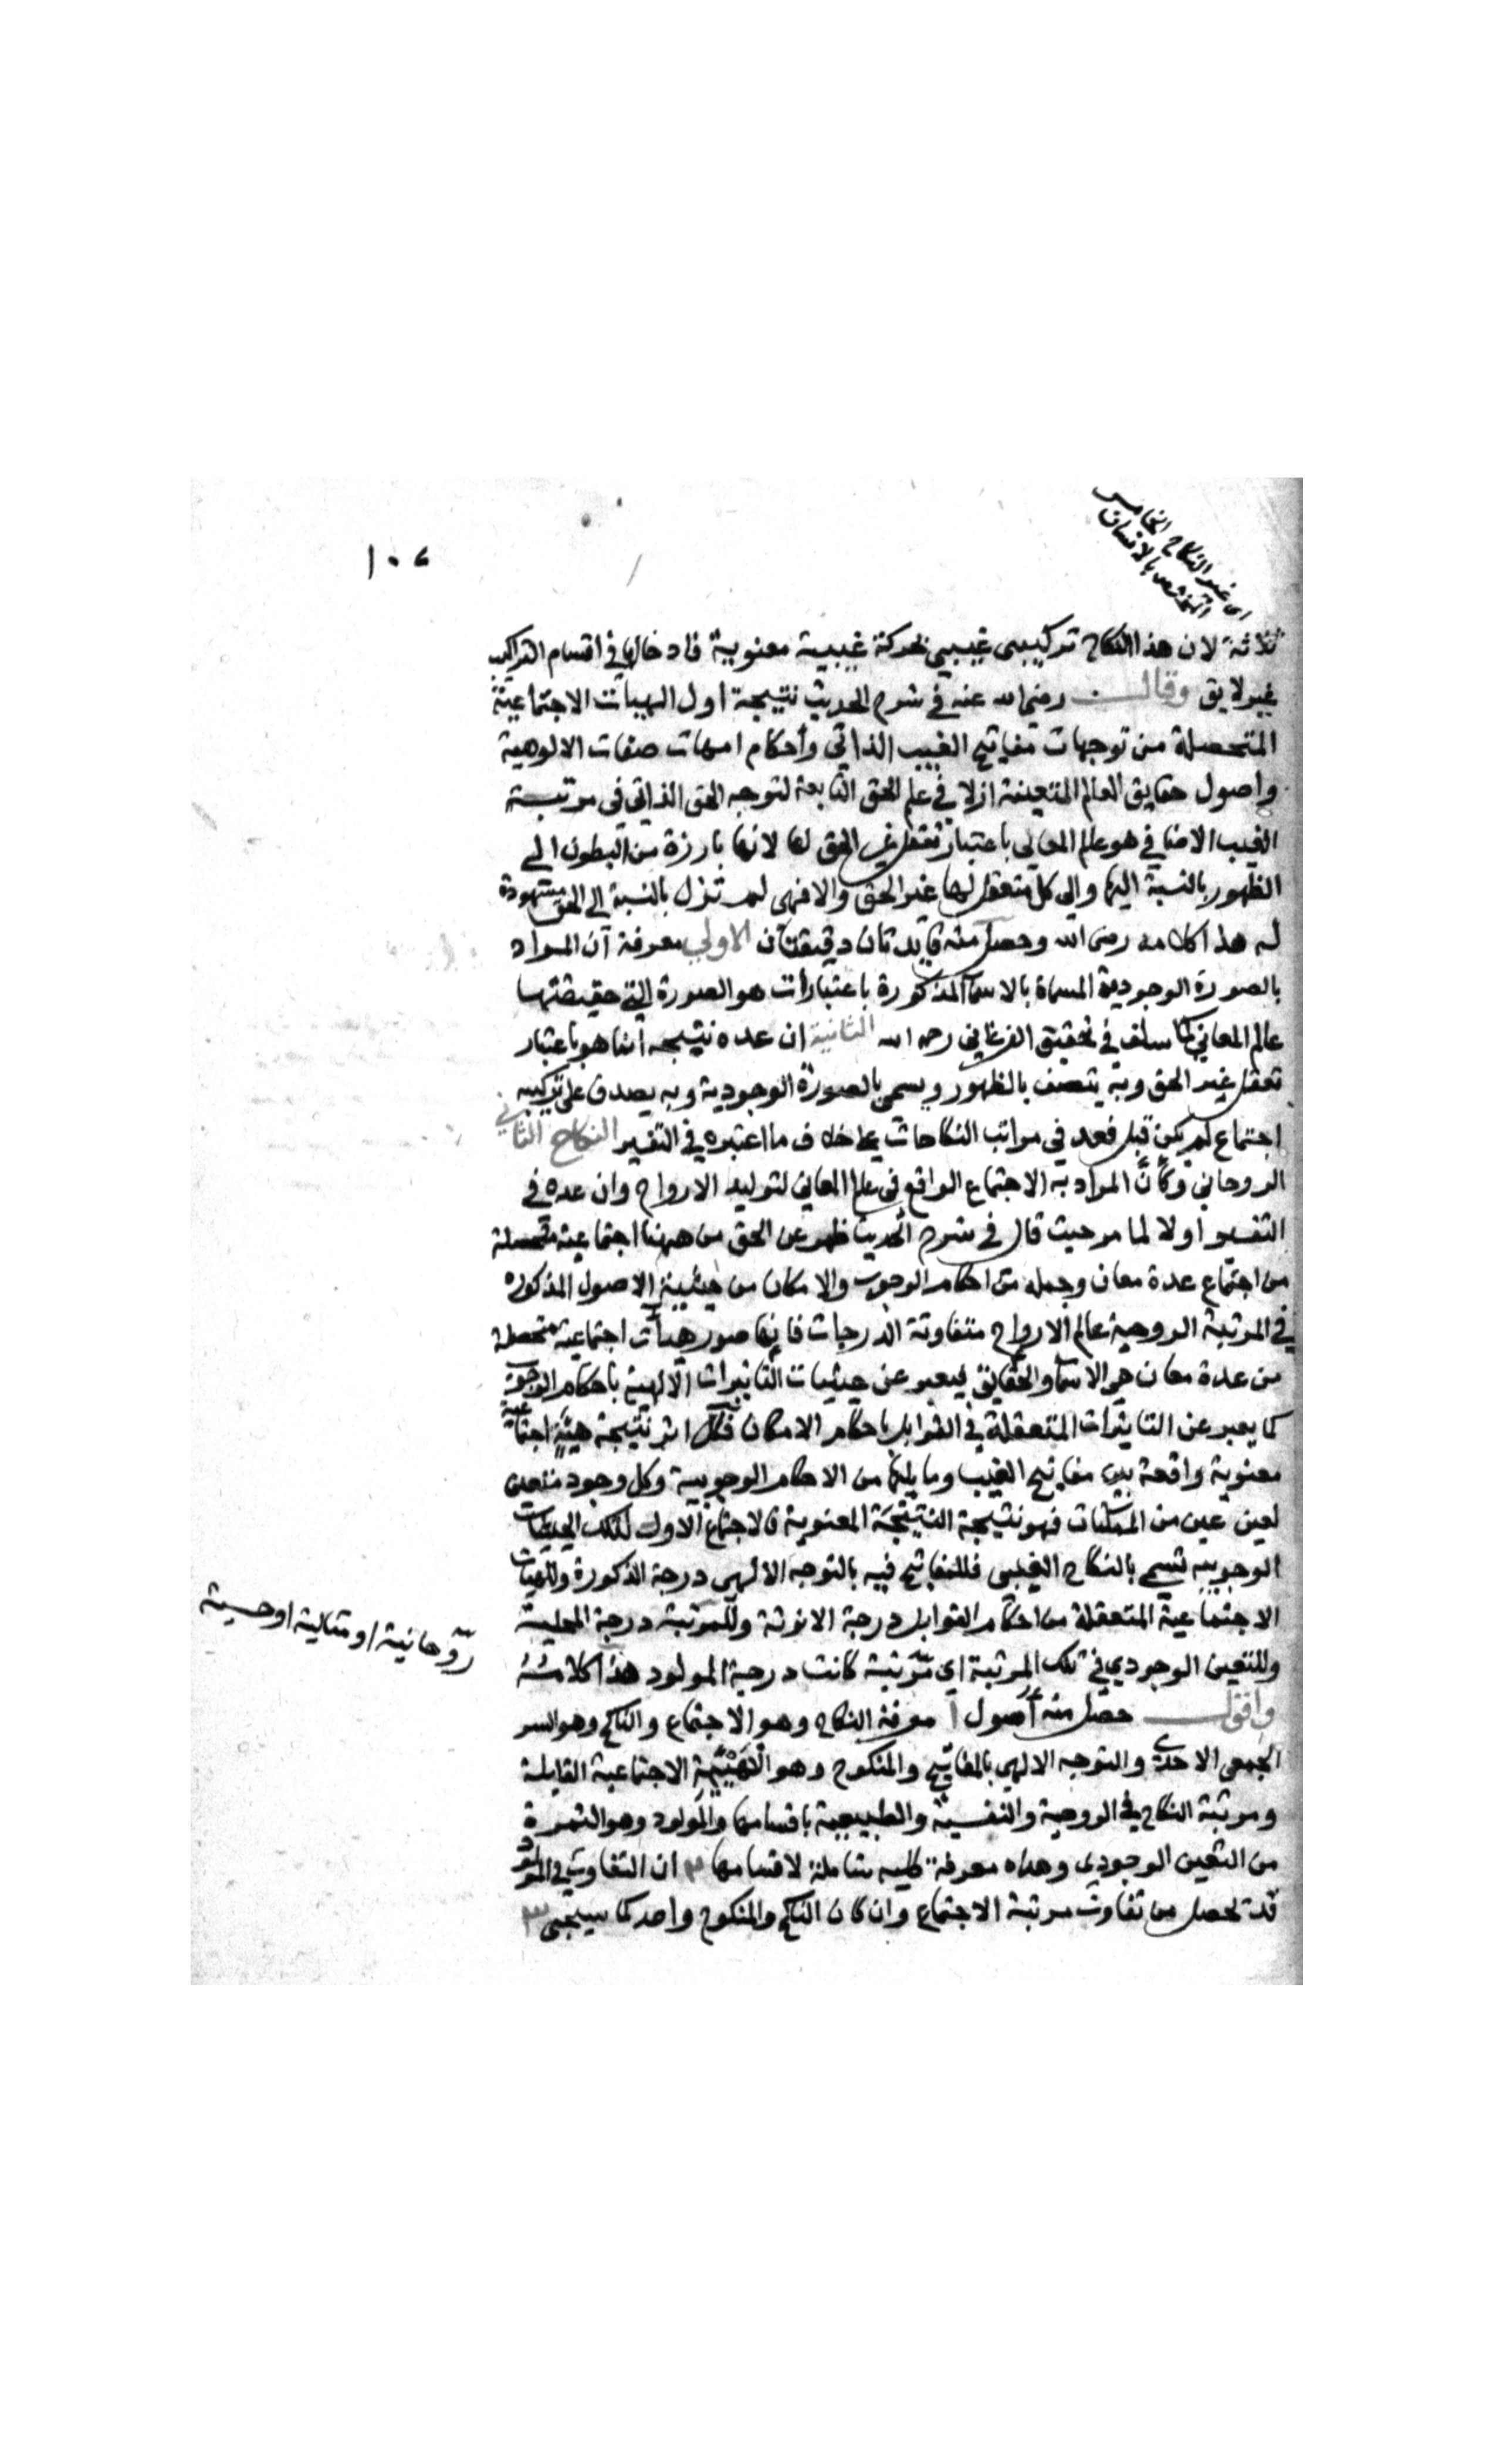 اى غير النكاح الخامس
المختص بالانسان
١٠٧
ثلاثة لان هذا النكاح تركيبى غيبي بحركة غيبية معنوية فادخالها في اقسام التراكيب
غير لايق وقال رضى الله عنه في شرح الحديث نتيجة اول الهيات الاجتماعية
المتحصلة من توجهات مفاتيح الغيب الذاتي وأحكام امهات صفات الالوهية
واصول حقايق العالم المتعينة ازلا في علم الحق التابعة لتوجه الحق الذاتي في مرتبة
الغيب الاضافي هو عالم المعاني باعتبار تعقل غير الحق لها لانها بارزة من البطون الى
الظهور بالنسبة اليها والى كل متعقل لها غير الحق والا فهى لم تزل بالنسبة الى الحق مشهودة
له هذا كلامه رضى الله وحصل منه فايدتان دقيقتان الاولى معرفة ان المراد
بالصورة الوجودية المسماة بالاسما المذكورة باعتبارات هو الصورة التي حقيقتها
عالم المعاني كما سلف في تحقيق الفرغاني رحمه الله الثانية ان عده نتيجه انما هو باعتبار
تعقل غير الحق وبه يتصف بالظهور ويسمى بالصورة الوجودية وبه يصدق على تركيبه
اجتماع لم يكن قبل فعد في مراتب النكاحات بخلاف ما اعتبره في التفسير النكاح الثاني
الروحاني وكأنّ المراد به الاجتماع الواقع في عالم المعاني لتوليد الارواح وان عده في
التفسير اولا لما مر حيث قال في شرح الحديث ظهر عن الحق من هيئات اجتماعية متحصلة
من اجتماع عدة معان وجمله من احكام الوجوب والامكان من حيثية الاصول المذكوره
في المرتبة الروحية عالم الارواح متفاوتة الدرجات فانها صور هيأت اجتماعية متحصلة
من عدة معان هي الاسما والحقايق فيعبر عن حيثيات التاثيرات الالهية باحكام الوجوب
كما يعبر عن التاثرات المتعقلة في القوابل باحكام الامكان فكل اثر نتيجة هيئة اجتماعية
معنوية واقعة بين مفاتيح الغيب وما يليها من الاحكام الوجوبية وكل وجود متعين
لعين عين من الممكنات فهو نتيجة النتيجة المعنوية فالاجتماع الاول لتلك الحيثيات
الوجوبيه تسمى بالنكاح الغيبى فللمفاتيح فيه بالتوجه الالهى درجة الذكورة وللهيات
الاجتماعية المتعقلة من احكام القوابل درجة الانوثة وللمرتبة درجة المحلية
وللتعين الوجودي في تلك المرتبة اي مرتبة كانت درجة المولود هذا كلامه
روحانية او مثالية او حسية
واقول حصل منه أصول ا معرفة النكاح وهو الاجتماع والناكح وهو السر
الجمعي الاحدي والتوجه الالهي بالمفاتيح والمنكوح وهو الهيئة الاجتماعية القابلة
ومرتبة النكاح في الروحية والنفسية والطبيعية باقسامها والمولود وهو الثمرة
من التعين الوجودي وهذه معرفة كلية شاملة لاقسامها ٢ ان التفاوت في المولود
قد تحصل من تفاوت مرتبة الاجتماع وان كان الناكح والمنكوح واحد كما سيجى ٣